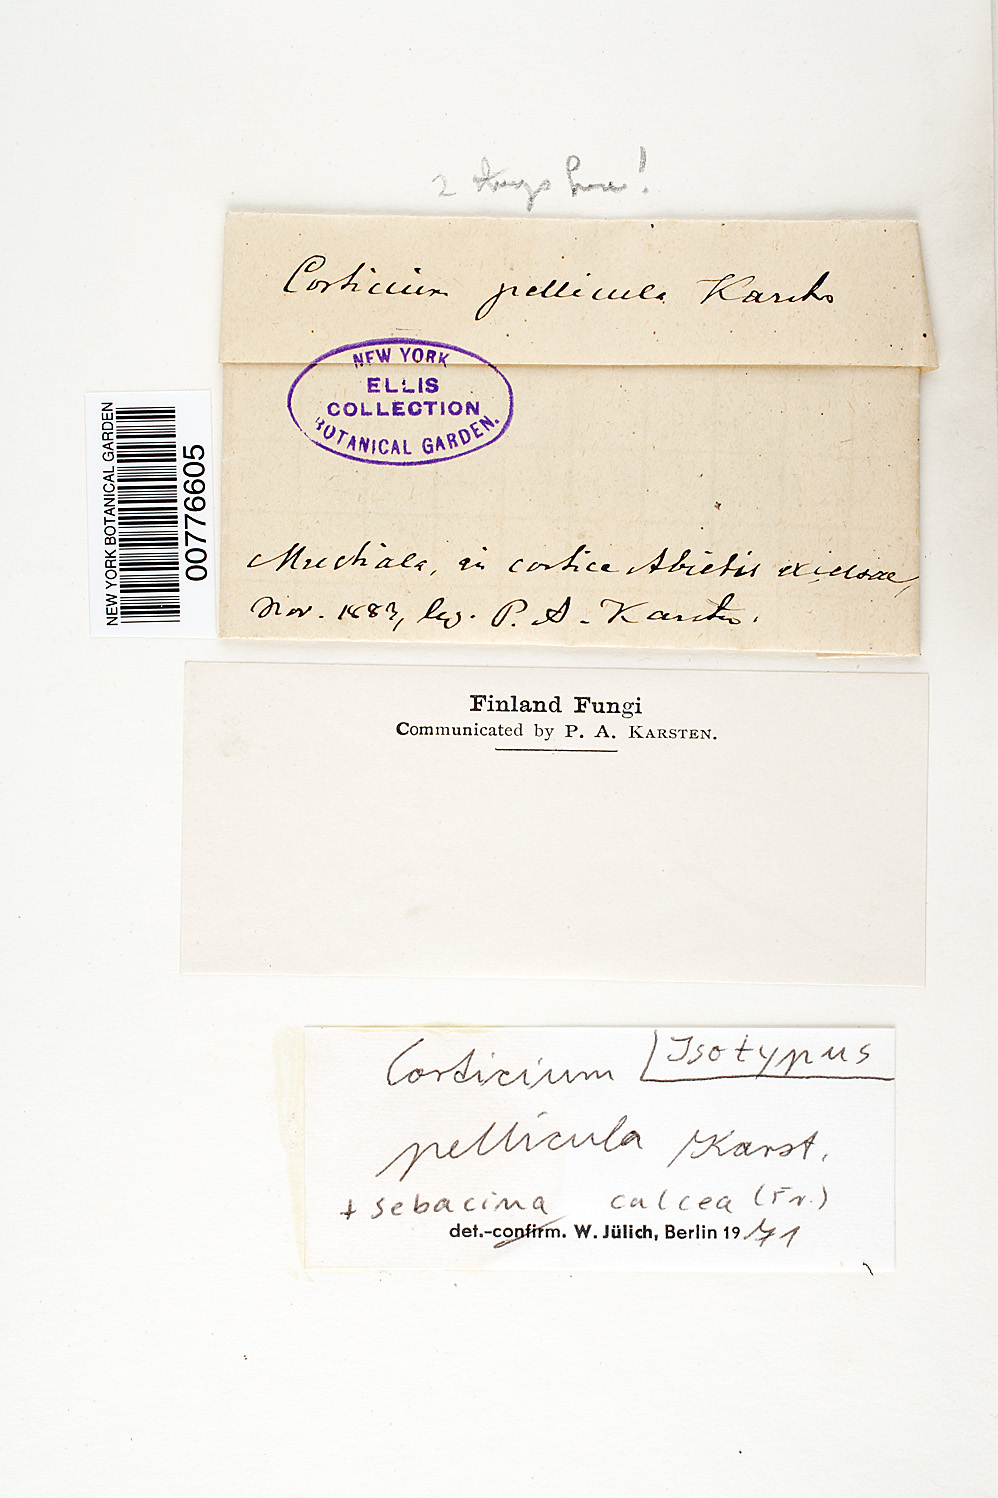 2 fungi here!
Corticium pellicula Karsten
NEW YORK
ELLIS
COLLECTION
BOTANICAL GARDEN.
NEW YORK BOTANICAL GARDEN
00776605
Mustiala, in cortice Abietis excelsae,
Nov. 1883, leg. P. A. Karsten.
Finland Fungi
Communicated by P. A. KARSTEN.
Isotypus
Corticium
pellicula Karst.
+ sebacina calcea (Fr.)
det.-confirm. W. Jülich, Berlin 1971